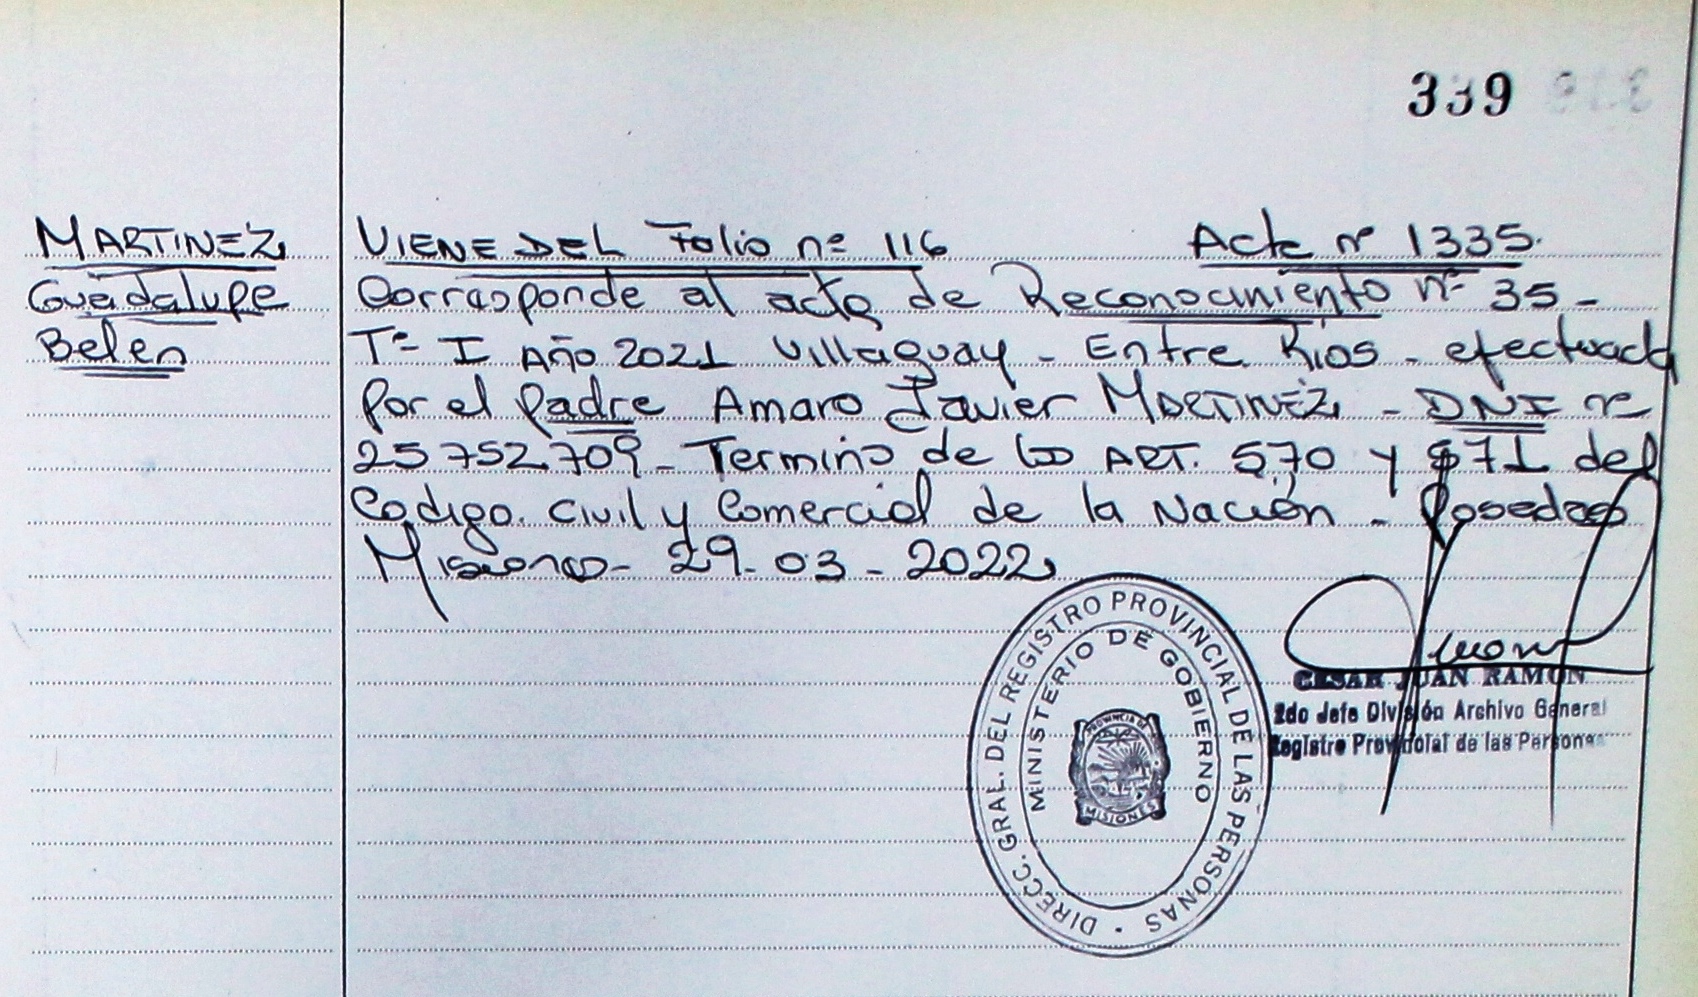 339
MARTINEZ
Guadalupe
Belen
VIENE DEL Folio nº 116 Acta nº 1335.
Corresponde al acta de Reconocimiento nº 35 -
Tº I Año 2021 Villaguay - Entre Ríos - efectuada
por el padre Amaro Javier MARTINEZ - DNI nº
25752709 - Termino de los ART. 570 y 571 del
Codigo. Civil y Comercial de la Nación - Posadas
Misiones - 29 - 03 - 2022
DIRECC. GRAL. DEL REGISTRO PROVINCIAL DE LAS PERSONAS
MINISTERIO DE GOBIERNO
PROVINCIA DE
MISIONES
CESAR JUAN RAMON
2do Jefe División Archivo General
Registro Provincial de las Personas